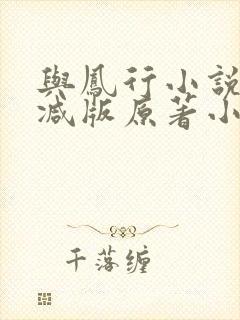 與鳳行小說
減版原著小
千落缠